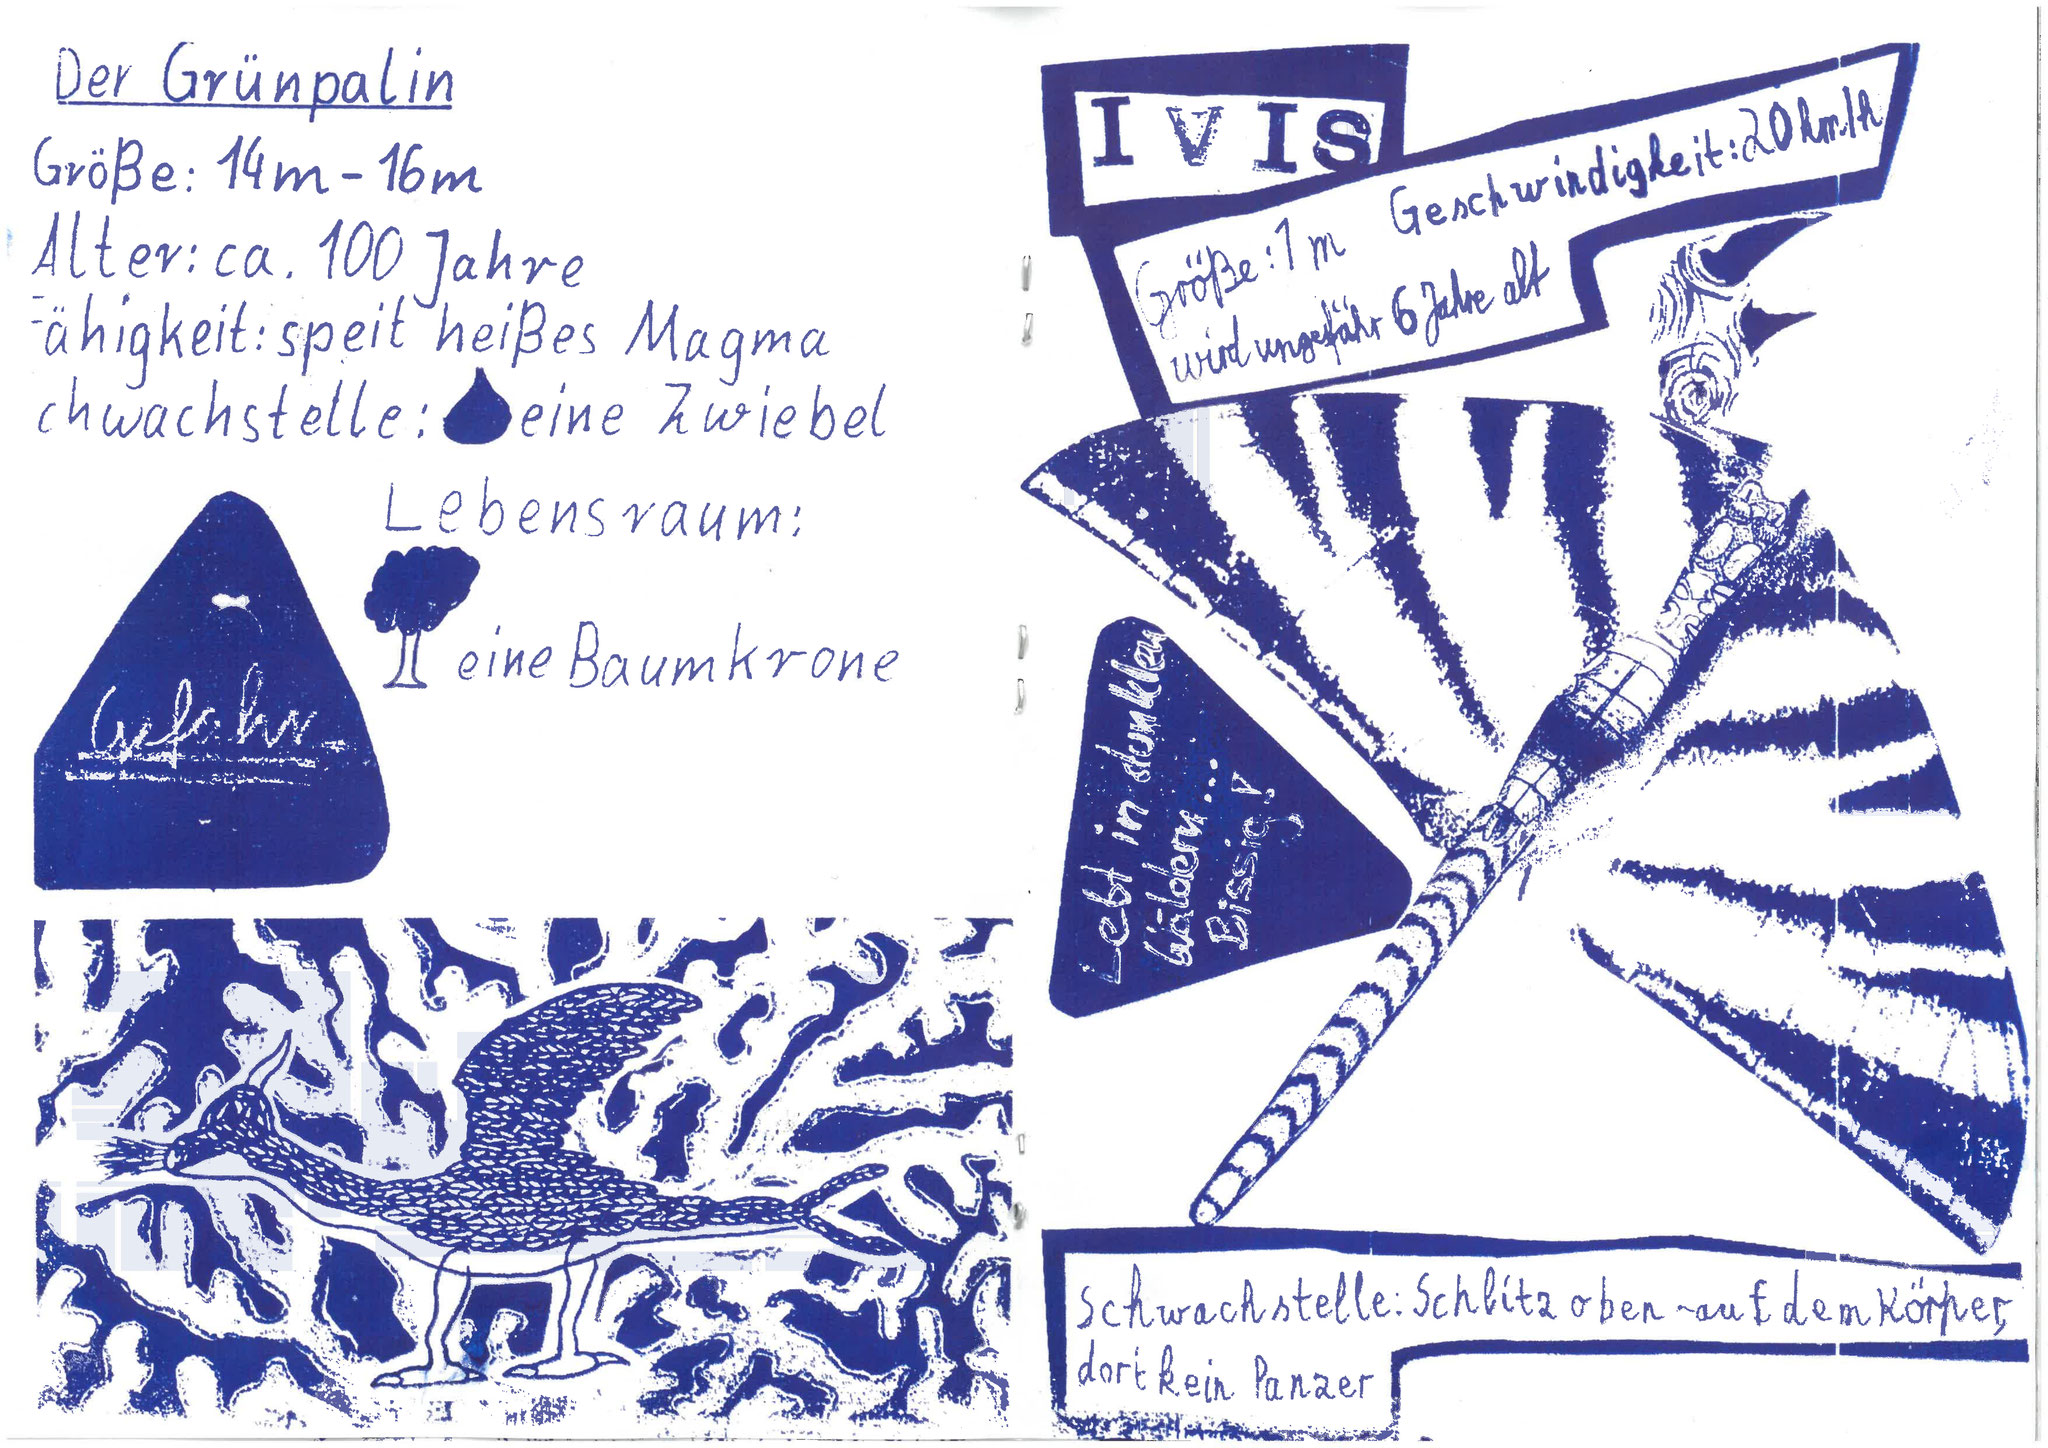 Der Grünpalin
Größe: 14m-16m
Alter: ca. 100 Jahre
Fähigkeit: speit heißes Magma
chwachstelle: eine Zwiebel
Lebensraum:
eine Baumkrone
Gefahr
IVIS
Größe: 1 m Geschwindigkeit: 20 km/h
wird ungefähr 6 Jahre alt
Lebt in dunklen
Wäldern...
Bissig!
Schwachstelle: Schlitz oben - auf dem Körper,
dort kein Panzer